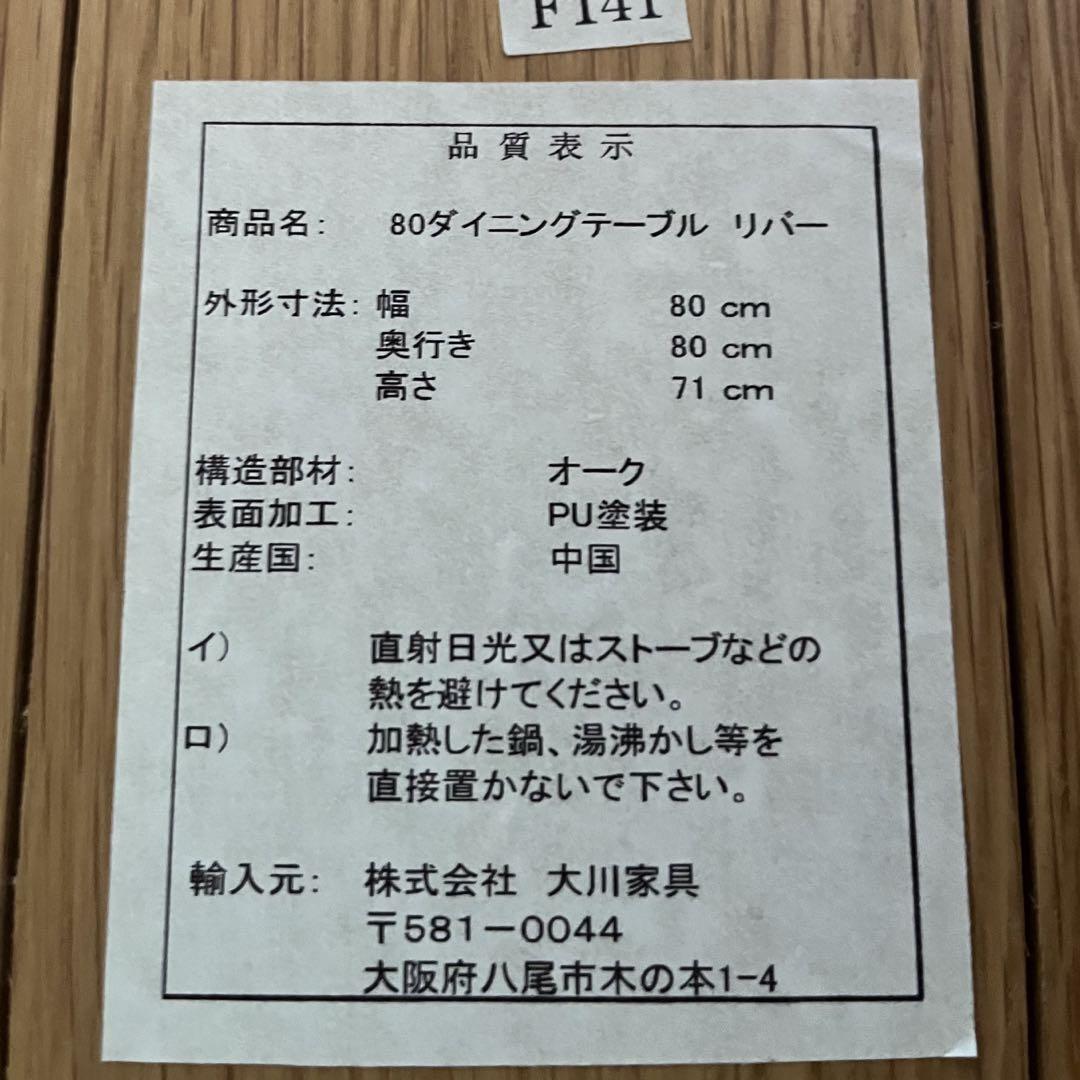 F141
品質表示
商品名： 80ダイニングテーブル リバー
外形寸法：幅 80 cm
奥行き 80 cm
高さ 71 cm
構造部材： オーク
表面加工： PU塗装
生産国： 中国
イ） 直射日光又はストーブなどの
熱を避けてください。
ロ） 加熱した鍋、湯沸かし等を
直接置かないで下さい。
輸入元： 株式会社 大川家具
〒581－0044
大阪府八尾市木の本1-4